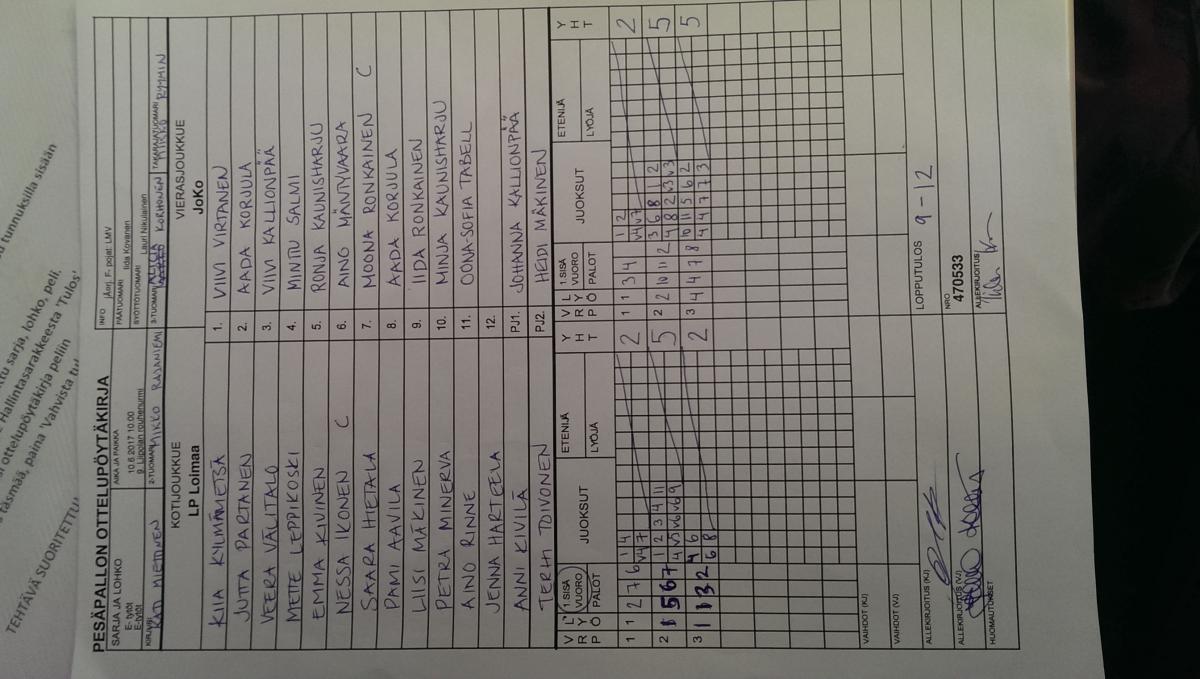 tu tunnuksilla sisään
ttu sarja, lohko, peli.
Hallintasarakkeesta 'Tulos'
ottelupöytäkirja peliin
täsmää, paina 'Vahvista tu
TEHTÄVÄ SUORITETTU!
PESÄPALLON OTTELUPÖYTÄKIRJA
SARJA JA LOHKO
E-tytöt
E-tytöt
AIKA JA PAIKKA
10.6.2017 10.00
9. Liipolan nuorinurmi
INFO jÄorj. F- pojat: LMV
PÄÄTUOMARI Iida Kovanen
SYÖTTÖTUOMARI Lauri Nikulainen
KIRJURI KATI MIETTINEN
2-TUOMARI MIKKO RAJANIEMI
3-TUOMARI KORHONEN
TAKARAJATUOMARI MIKKO RYMMIN
KOTIJOUKKUE
LP Loimaa
VIERASJOUKKUE
JoKo
KIIA KYLMÄMETSÄ 1. VIIVI VIRTANEN
JUTTA PARTANEN 2. AADA KORJULA
VEERA VÄLITALO 3. VIIVI KALLIONPÄÄ
METTE LEPPIKOSKI 4. MINTTU SALMI
EMMA KIVINEN 5. RONJA KAUNISHARJU
NESSA IKONEN C 6. AINO MÄNTYVAARA
SAARA HIETALA 7. MOONA RONKAINEN C
PAMI AAVILA 8. AADA KORJULA
LIISI MÄKINEN 9. IIDA RONKAINEN
PETRA MINERVA 10. MINJA KAUNISHARJU
AINO RINNE 11. OONA-SOFIA TABELL
JENNA HARTEELA 12.
ANNI KIVILÄ PJ1. JOHANNA KALLIONPÄÄ
TERHI TOIVONEN PJ2. HEIDI MÄKINEN
V L 1.SISÄ JUOKSUT ETENIJÄ Y V L 1.SISÄ JUOKSUT ETENIJÄ Y
R Y VUORO H R Y VUORO H
P Ö PALOT LYÖJÄ T P Ö PALOT LYÖJÄ T
1 1 2 7 6 1 4 2 1 1 3 4 1 2 2
V4 V7 V4 V7
2 5 6 7 1 2 3 4 11 5 2 2 10 11 2 3 6 8 1 2 5
4 V5 V6 V6 9 4 8 2 V3 V3
3 1 3 2 4 6 2 3 4 4 7 8 10 11 5 6 2 5
6 8 4 4 7 7 3
VAIHDOT (KJ)
VAIHDOT (VJ)
ALLEKIRJOITUS (KJ)
LOPPUTULOS 9-12
ALLEKIRJOITUS (VJ)
NRO
470533
ALLEKIRJOITUS
HUOMAUTUKSET